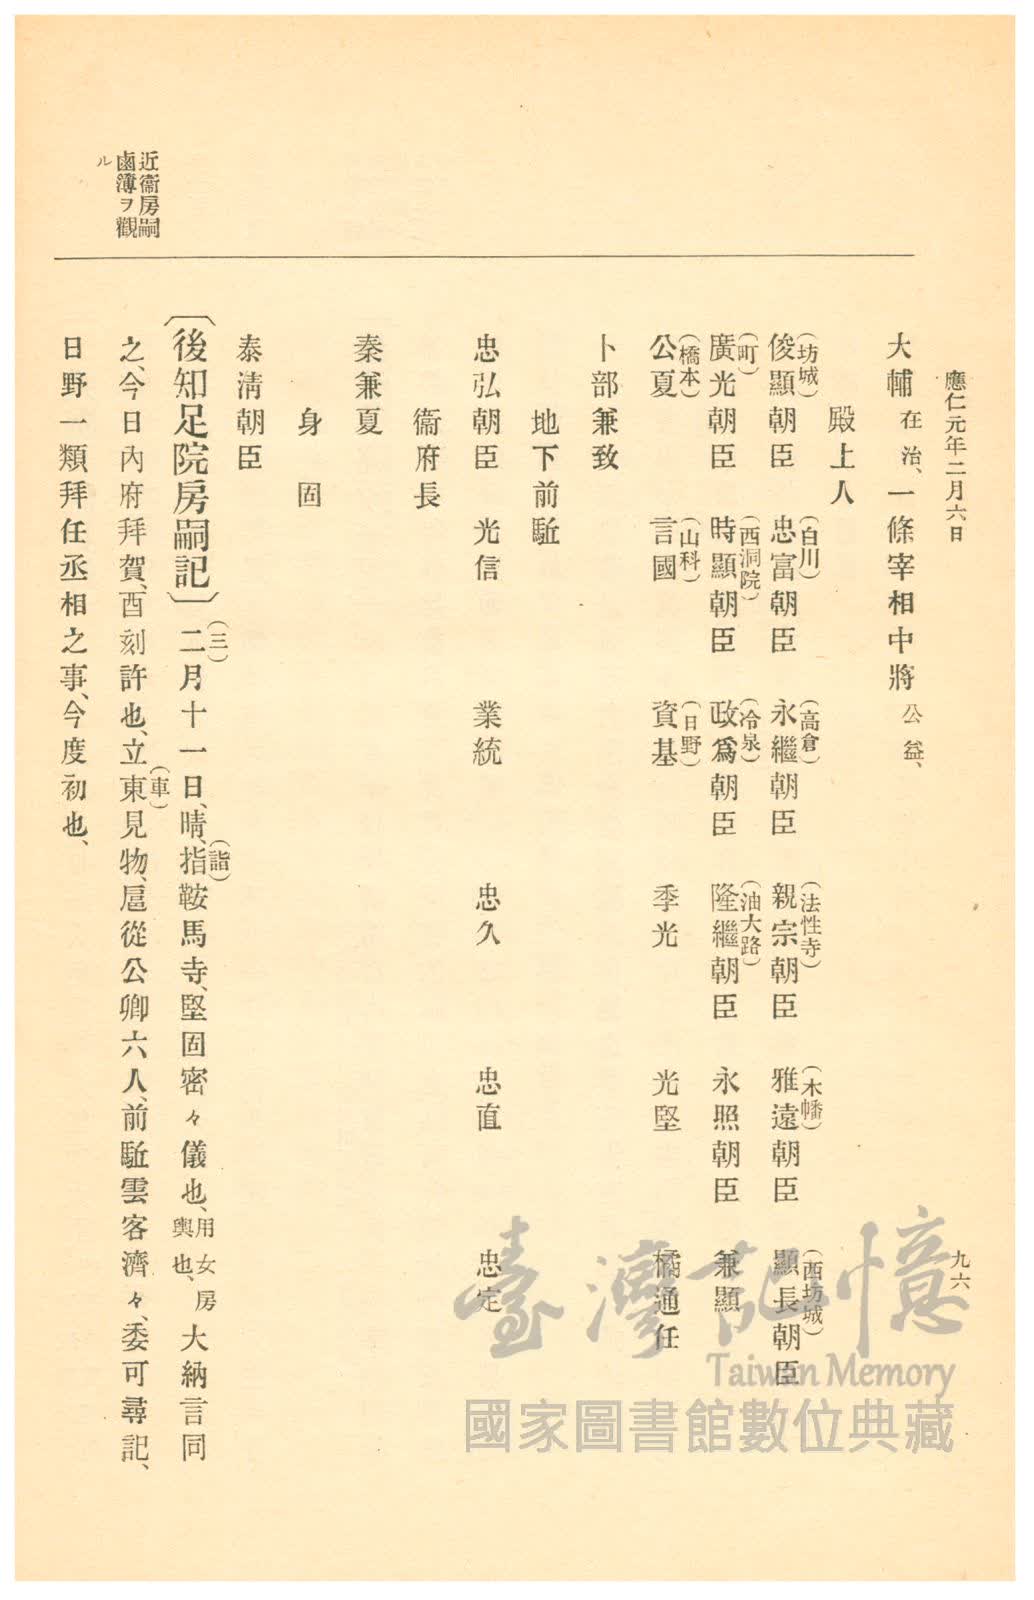 應仁元年二月六日
九六
大輔在治、一條宰相中將公益、
殿上人
俊顯朝臣(坊城) 忠富朝臣(白川) 永繼朝臣(高倉) 親宗朝臣(法性寺) 雅遠朝臣(木幡) 顯長朝臣(西坊城)
廣光朝臣(町) 時顯朝臣(西洞院) 政爲朝臣(冷泉) 隆繼朝臣(油大路) 永照朝臣 兼顯
公夏(橋本) 言國(山科) 資基(日野) 季光 光堅 橘通任
卜部兼致
地下前駈
忠弘朝臣 光信 業統 忠久 忠直 忠定
衞府長
秦兼夏
身固
泰淸朝臣
〔後知足院房嗣記〕二(三)月十一日、晴、指(詣)鞍馬寺、堅固密々儀也、用女房輿也、大納言同
之、今日內府拜賀、酉刻許也、立東(車)見物、扈從公卿六人、前駈雲客濟々、委可尋記、
日野一類拜任丞相之事、今度初也、
近衞房嗣
鹵簿ヲ觀
ル
臺灣記憶
Taiwan Memory
國家圖書館數位典藏